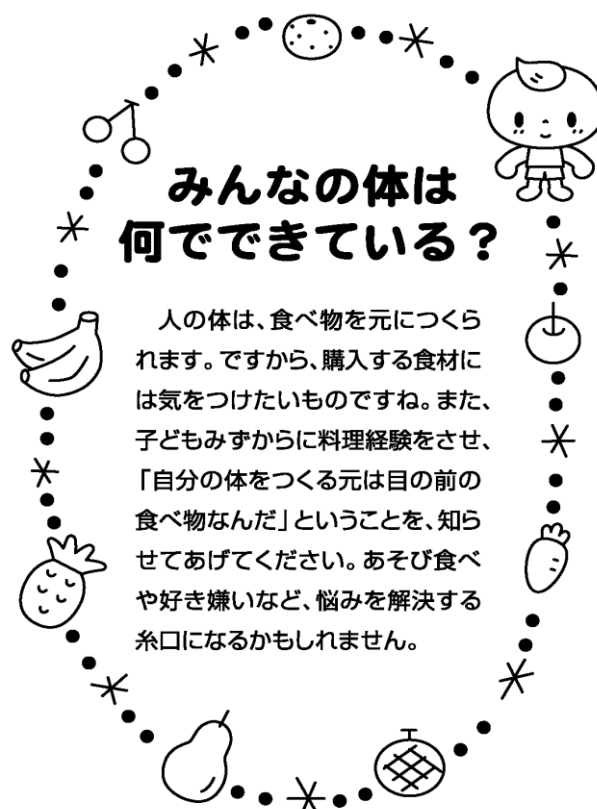 みんなの体は
何でできている?
人の体は、食べ物を元につくら
れます。ですから、購入する食材に
は気をつけたいものですね。また、
子どもみずからに料理経験をさせ、
「自分の体をつくる元は目の前の
食べ物なんだ」ということを、知ら
せてあげてください。あそび食べ
や好き嫌いなど、悩みを解決する
糸口になるかもしれません。